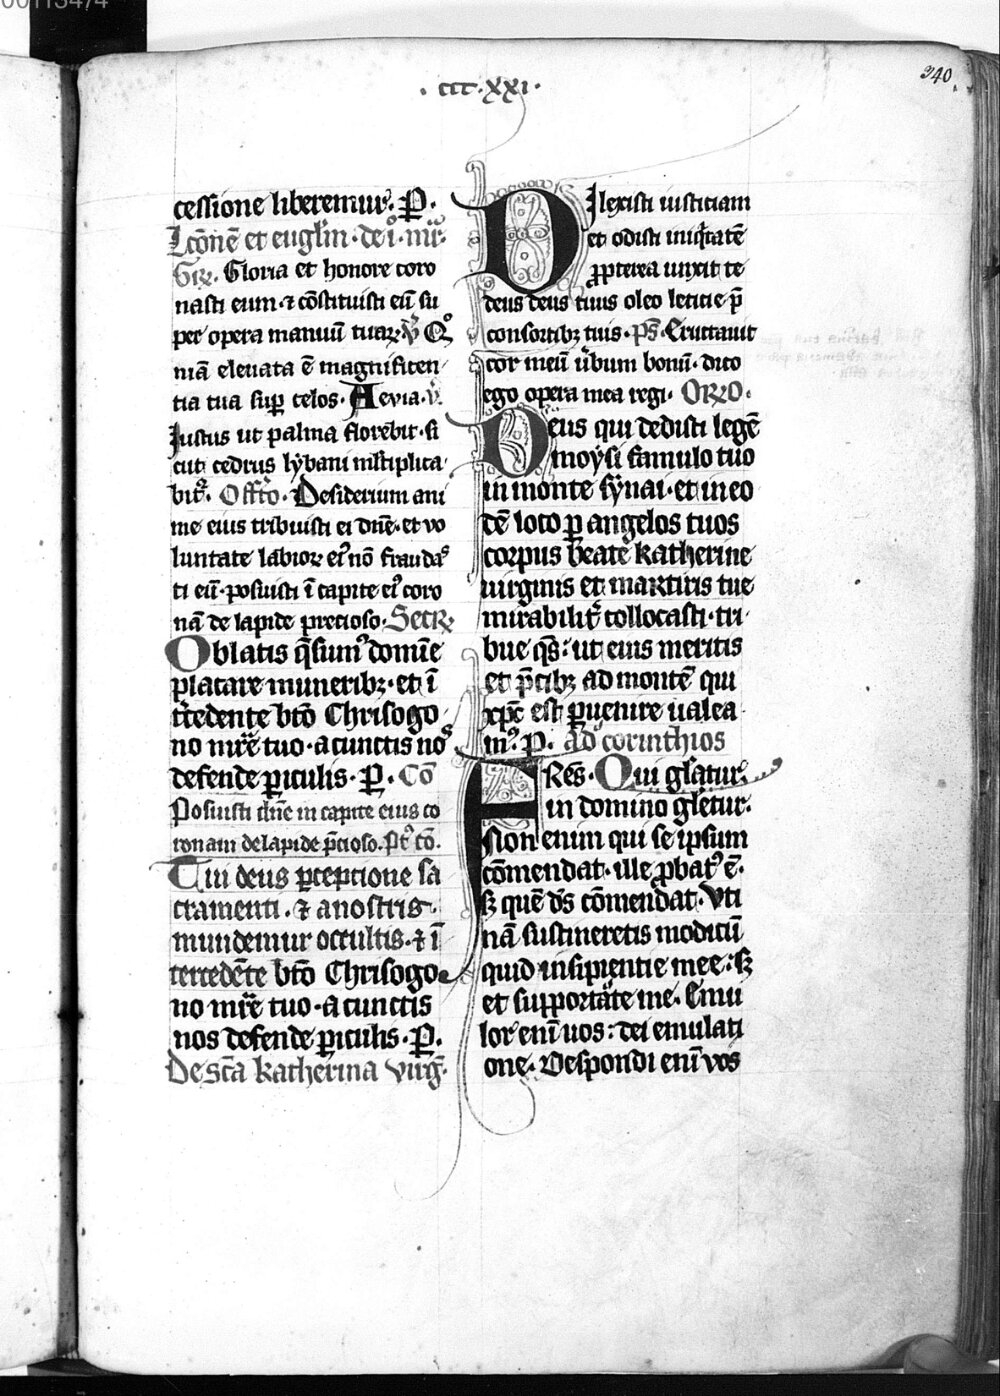 00113474
· ccc · xxi ·
340
cessione liberemur. P.
Lc̄onē et euglm̄ · de i · mr̄.
Gr̄. Gloria et honore coro
nasti eum · ⁊ cōstituisti eū su
per opera manuū tuaꝝ. V̄ Qo
niā eleuata ē magnificen
tia tua suꝑ celos · Aevia. V̄.
Justus ut palma florebit · si
cut cedrus lybani ml̄tiplica
bitᷣ. Offr̄o. Desiderium ani
me eius tribuisti ei dn̄e · et vo
luntate labioꝝ ei9 nō fraudas
ti eū · posuisti ī capite ei9 coro
nā de lapide precioso. Secꝝ
Oblatis q̄sum9 domīe
placare muneribꝫ · et ī
tercedente bt̄o Chrisogo
no mr̄e tuo · a cunctis nos
defende ꝑiculis · P. Cō
Posuisti dn̄e in capite eius co
ronam de lapide p̄cioso. Pt9 cō.
Tui deus ꝑceptione sa
cramenti · ⁊ a nostris
mundemur occultis · ⁊ ī
tercedēte bt̄o Chrisogo
no mr̄e tuo · a cunctis
nos defende ꝑiculis · P.
De sc̄a katherina virḡ.
Dilexisti iusticiam
et odisti iniq̇tatē
ꝓpterea unxit te
deus deus tuus oleo leticie p̄
consortibꝫ tuis · ps̄. Eructauit
cor meū v̄bum bonū · dico
ego opera mea regi · ORꝜO.
Deus qui dedisti legē
moysi famulo tuo
in monte synai · et in eo
dē loco ꝑ angelos tuos
corpus beate katherine
uirginis et martiris tue
mirabilitᷣ collocasti · tri
bue qs̄ : ut eius meritis
et p̄cibꝫ ad montē qui
xpc̄ est ꝑuenire ualea
m9. P. ad corinthios
FRēs. Qui gl̄atur
in domino gl̄etur.
Non enim qui se ipsum
cōmendat · ille ꝓbat9 ē.
sꝫ quē ds̄ cōmendat. Vti
nā sustineretis modicū
quid insipientie mee : sꝫ
et supportate me. Emu
lor enī uos : dei emulati
one. Despondi enī vos